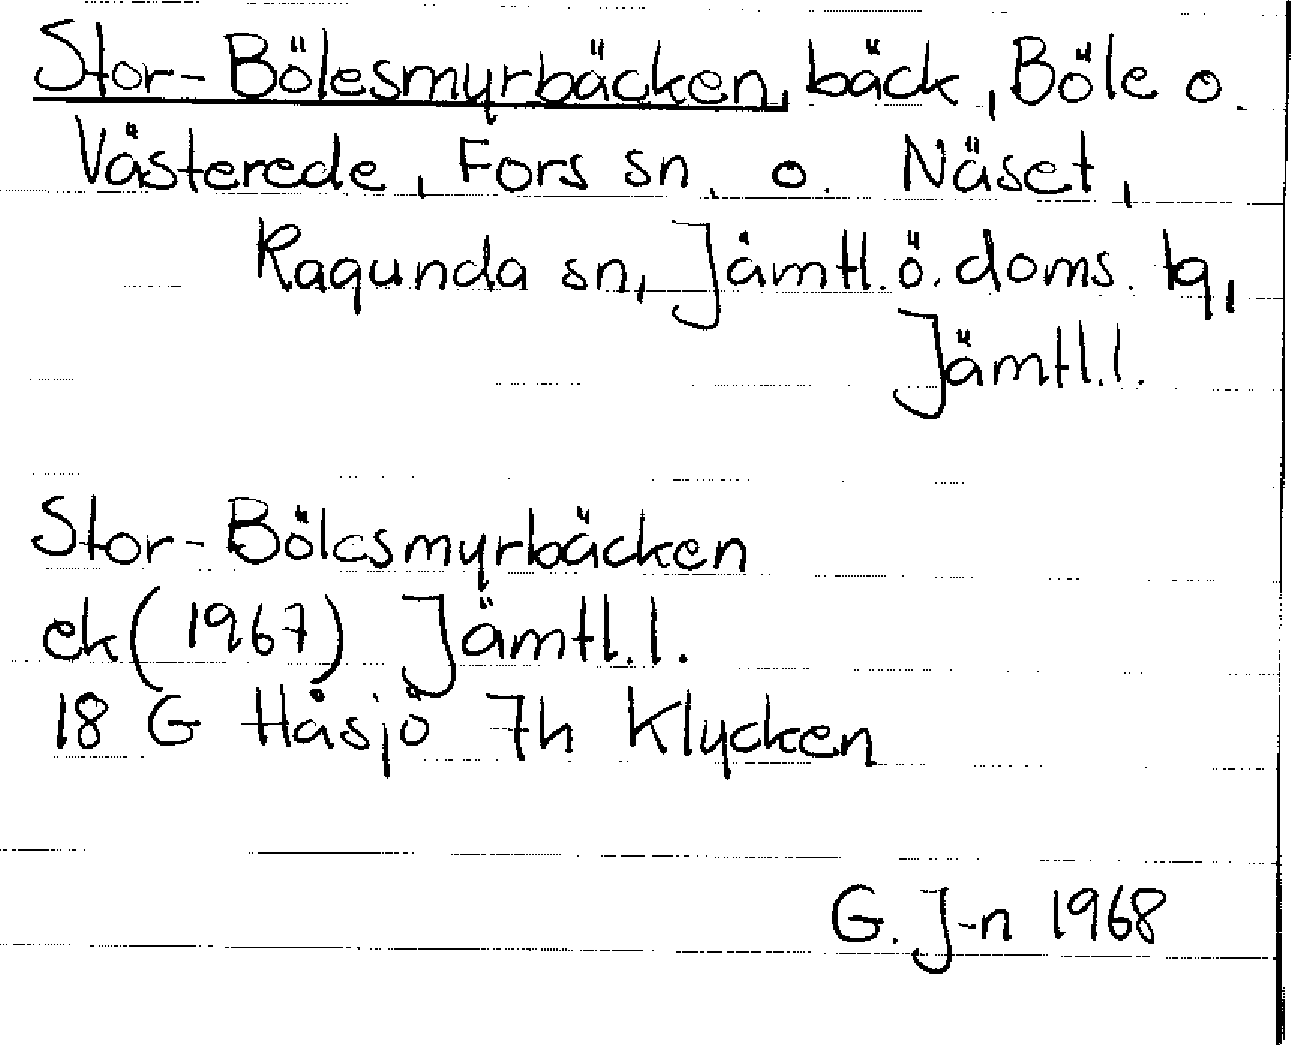 Stor-Bölesmyrbäcken, bäck, Böle o.
Västerede, Fors sn. o. Näset,
Ragunda sn, Jämtl.ö.doms. lg,
Jämtl.l.
Stor-Bölesmyrbäcken
ek(1967) Jämtl.l.
18 G Håsjö 7h Klycken
G. J-n 1968